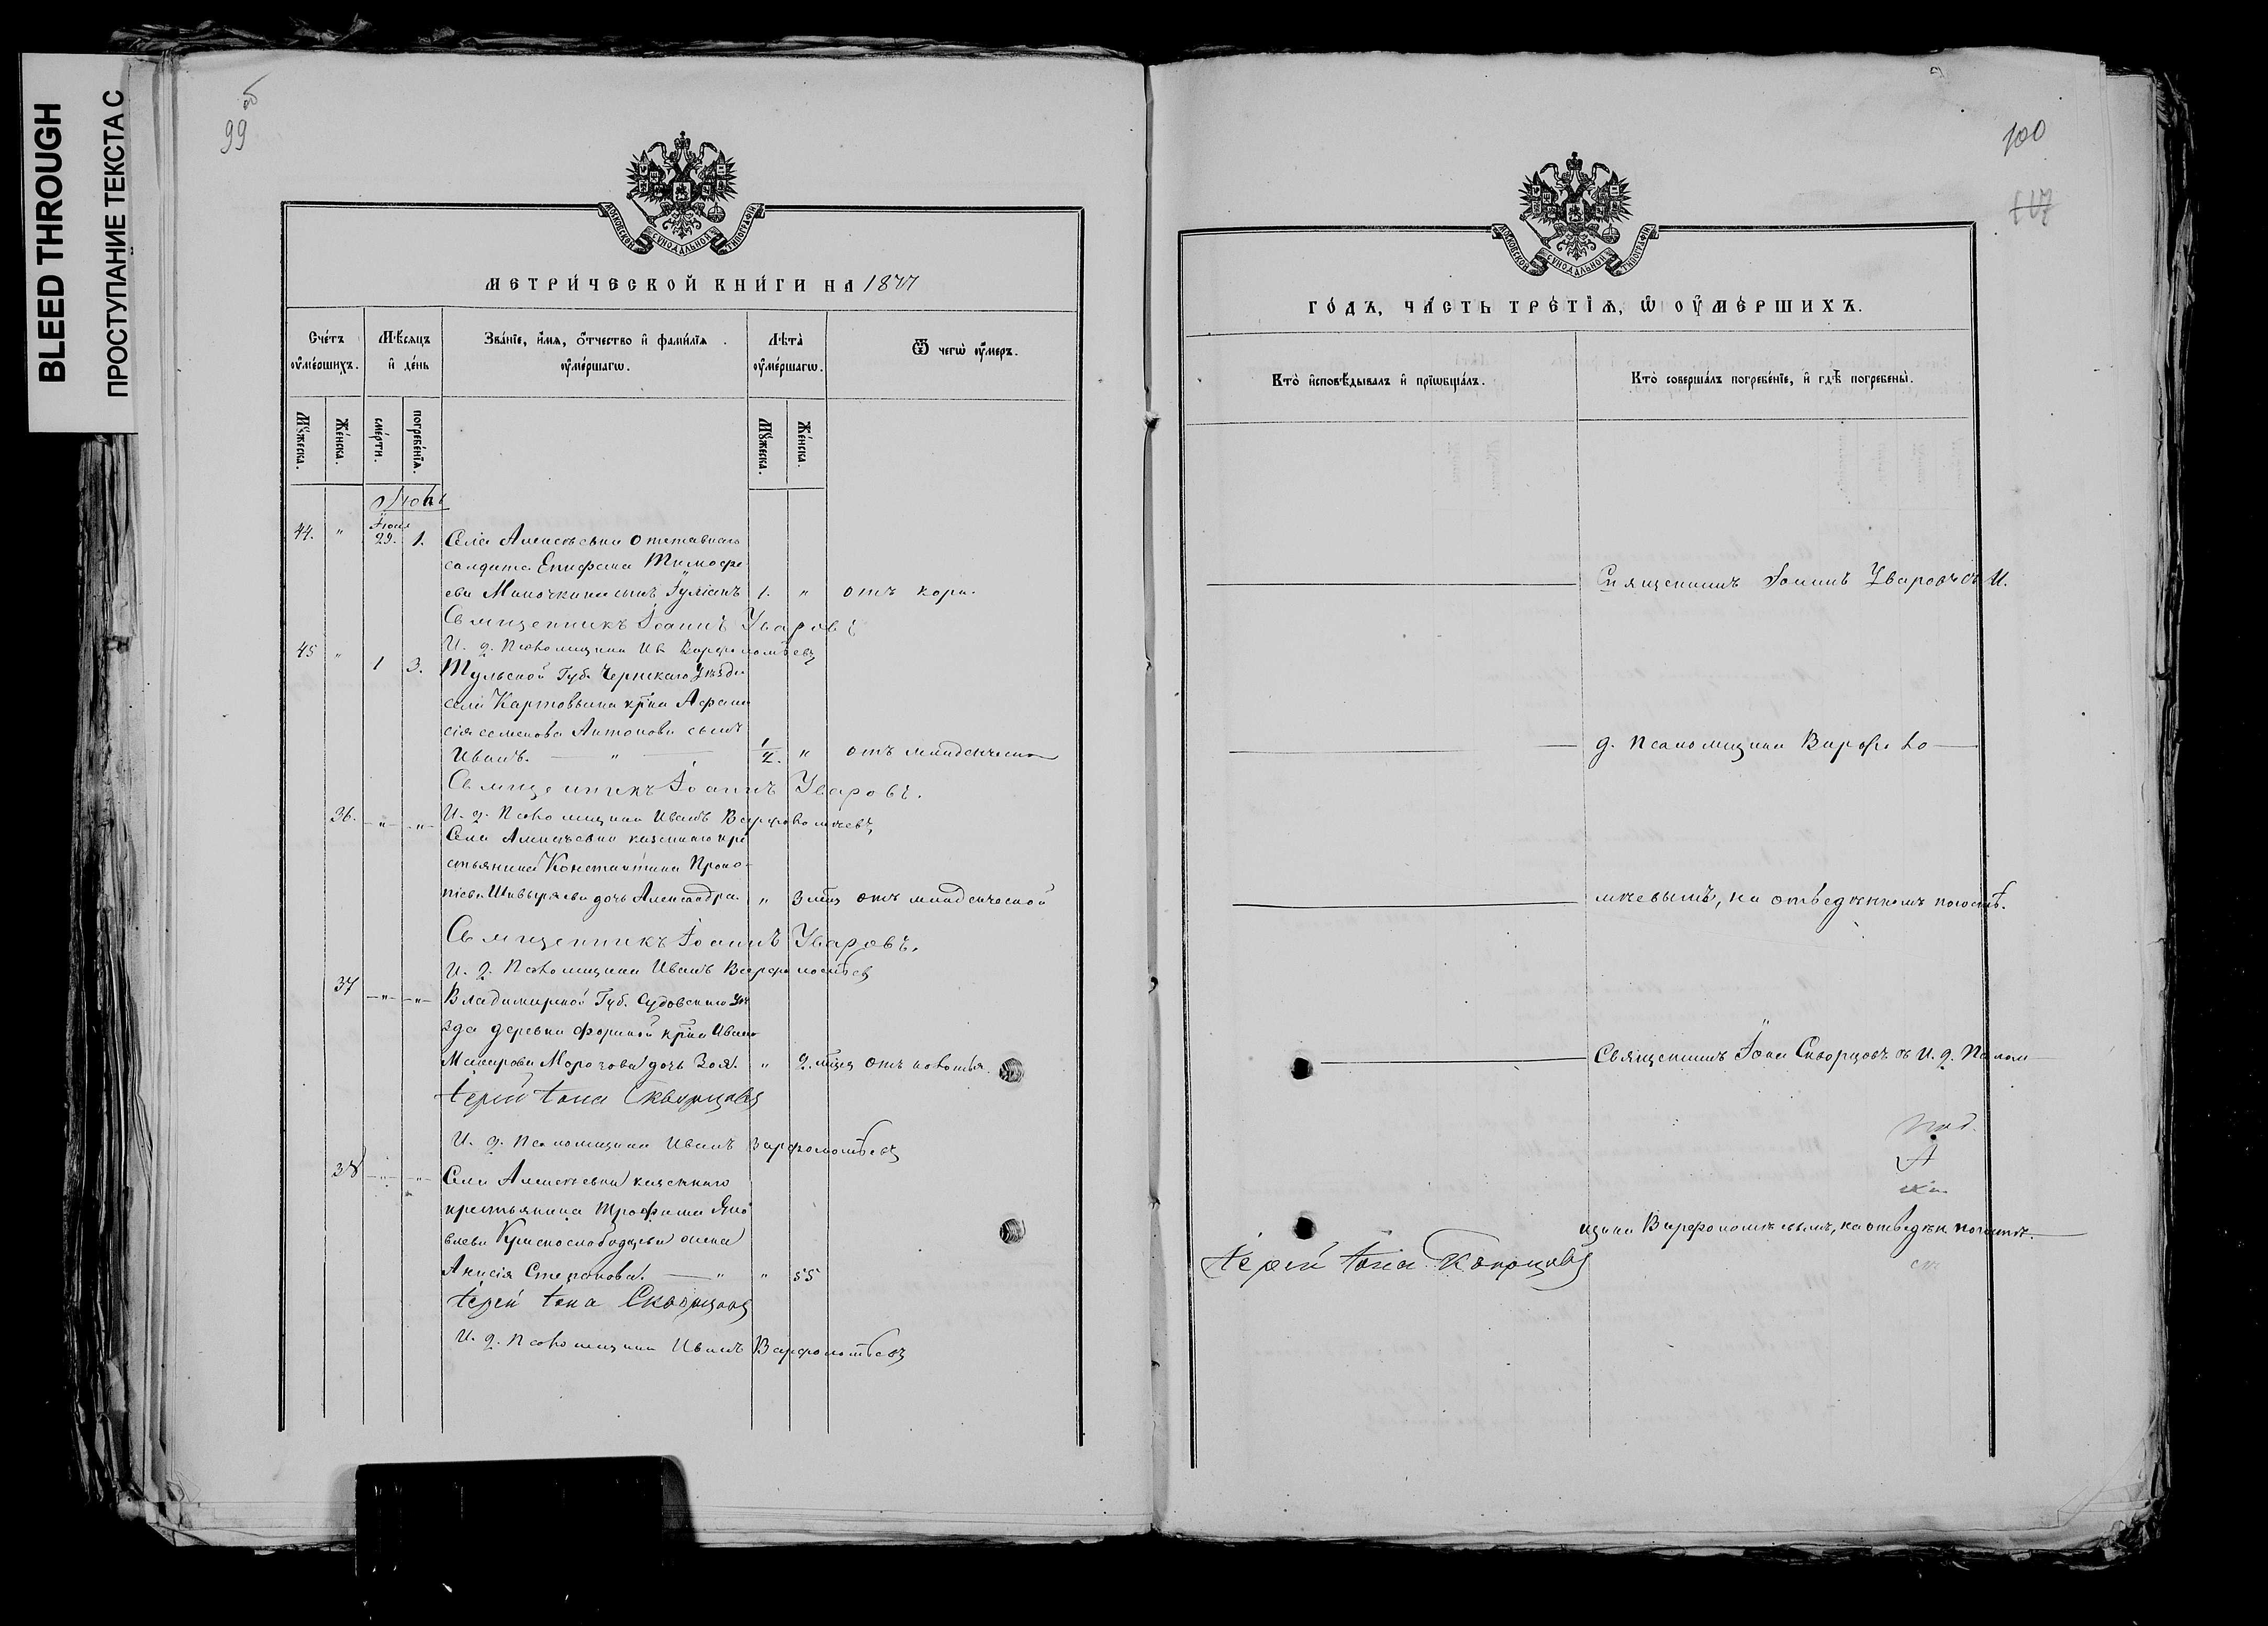 BLEED THROUGH
ПРОСТУПАНИЕ ТЕКСТА С
99 об
МОСКОВСКОЙ СУНОДАЛЬНОЙ ТИПОГРАФІИ
МЕТРИ́ЧЕСКОЙ КНИ́ГИ НА 1877
Сче́тъ ᲂу҆ме́ршихъ.
Мѣ́сяцъ и҆ де́нь
Зва́нїе, и҆́мя, ѻ҆́тчество и҆ фами́лїя ᲂу҆ме́ршагѡ.
Лѣта̀ ᲂу҆ме́ршагѡ.
Ѿ чегѡ̀ ᲂу҆́меръ.
Мꙋ́жеска.
Же́нска.
сме́рти.
погребе́нїѧ.
Мꙋ́жеска.
Же́нска.
Іюль
44. " Іюня 29. 1. Села Алексѣевки отставнаго
солдата Епифана Тимофе
ева Миночкина сынъ Іуліанъ 1. " отъ кори.
Священникъ Іоаннъ Уваровъ
И. д. Псаломщика Ив. Варфоломѣевъ
45 " 1 3. Тульской Губ. Чернскаго Уѣзда
села кр̃на Афана
сія Семенова Антонова сынъ
Иванъ. — " — " отъ младенческой
Священникъ Іоаннъ Уваровъ.
И. д. Псаломщика Иванъ Варфоломѣевъ
36. " " Села Алексѣевки казеннаго кре
стьянина Константина Проко-
піева Шивыряева дочь Александра. " 3 мѣц отъ младенческой
Священникъ Іоаннъ Уваровъ.
И. д. Псаломщика Иванъ Варфоломѣевъ
37 " " Владимирской Губ. Судовскаго Уѣ
зда деревни кр̃на Ивана
Макарова Морозова дочь Зоя. " 2. мѣця отъ коклюша.
Іерей Іона Скворцовъ
И. д. Псаломщика Иванъ Варфоломѣевъ
38 " " Села Алексѣевки казеннаго
крестьянина Трофима Яко
влева Краснослободцева жена
Анисія Степанова. — " " 55
Іерей Іона Скворцовъ
И. д. Псаломщика Иванъ Варфоломѣевъ
100
117
МОСКОВСКОЙ СУНОДАЛЬНОЙ ТИПОГРАФІИ
ГО́ДЪ, ЧА́СТЬ ТРЕ́ТЇѦ, Ѡ҆ ОУ҆МЕ́РШИХЪ.
Кто̀ и҆сповѣ́дывалъ и҆ прїѡбща́лъ.
Кто̀ соверша́лъ погребе́нїе, и҆ гдѣ̀ погребены̀.
Священникъ Іоаннъ Уваровъ съ И.
д. Псаломщика Варфоло
мѣевымъ, на отведенномъ погостѣ.
Священникъ Іона Скворцовъ съ И. д. Псалом
щика Варфоломѣевымъ, на отведен погостѣ.
Іерей Іона Скворцовъ